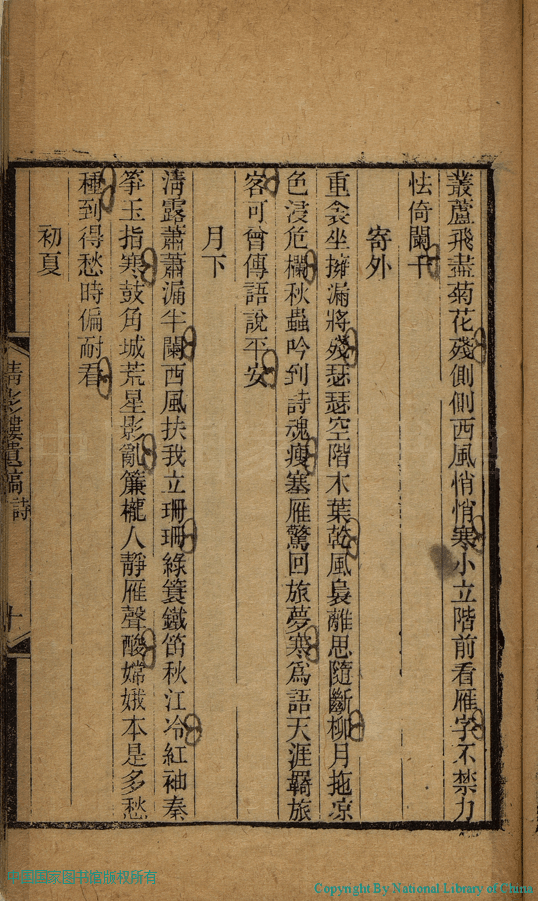 叢蘆飛盡菊花殘側側西風悄悄寒小立階前看雁字不禁力
怯倚闌干
寄外
重衾坐擁漏將殘瑟瑟空階木葉乾風裊離思隨斷柳月拖凉
色浸危欄秋蟲吟到詩魂瘦塞雁驚回旅夢寒爲語天涯羈旅
客可曾傳語說平安
月下
淸露蕭蕭漏半闌西風扶我立珊珊綠簑鐵笛秋江冷紅袖秦
箏玉指寒鼓角城荒星影亂簾櫳人靜雁聲酸嫦娥本是多愁
種到得愁時偏耐看
初夏
情影樓遺稿
詩
十
中国国家图书馆版权所有
Copyright By National Library of China